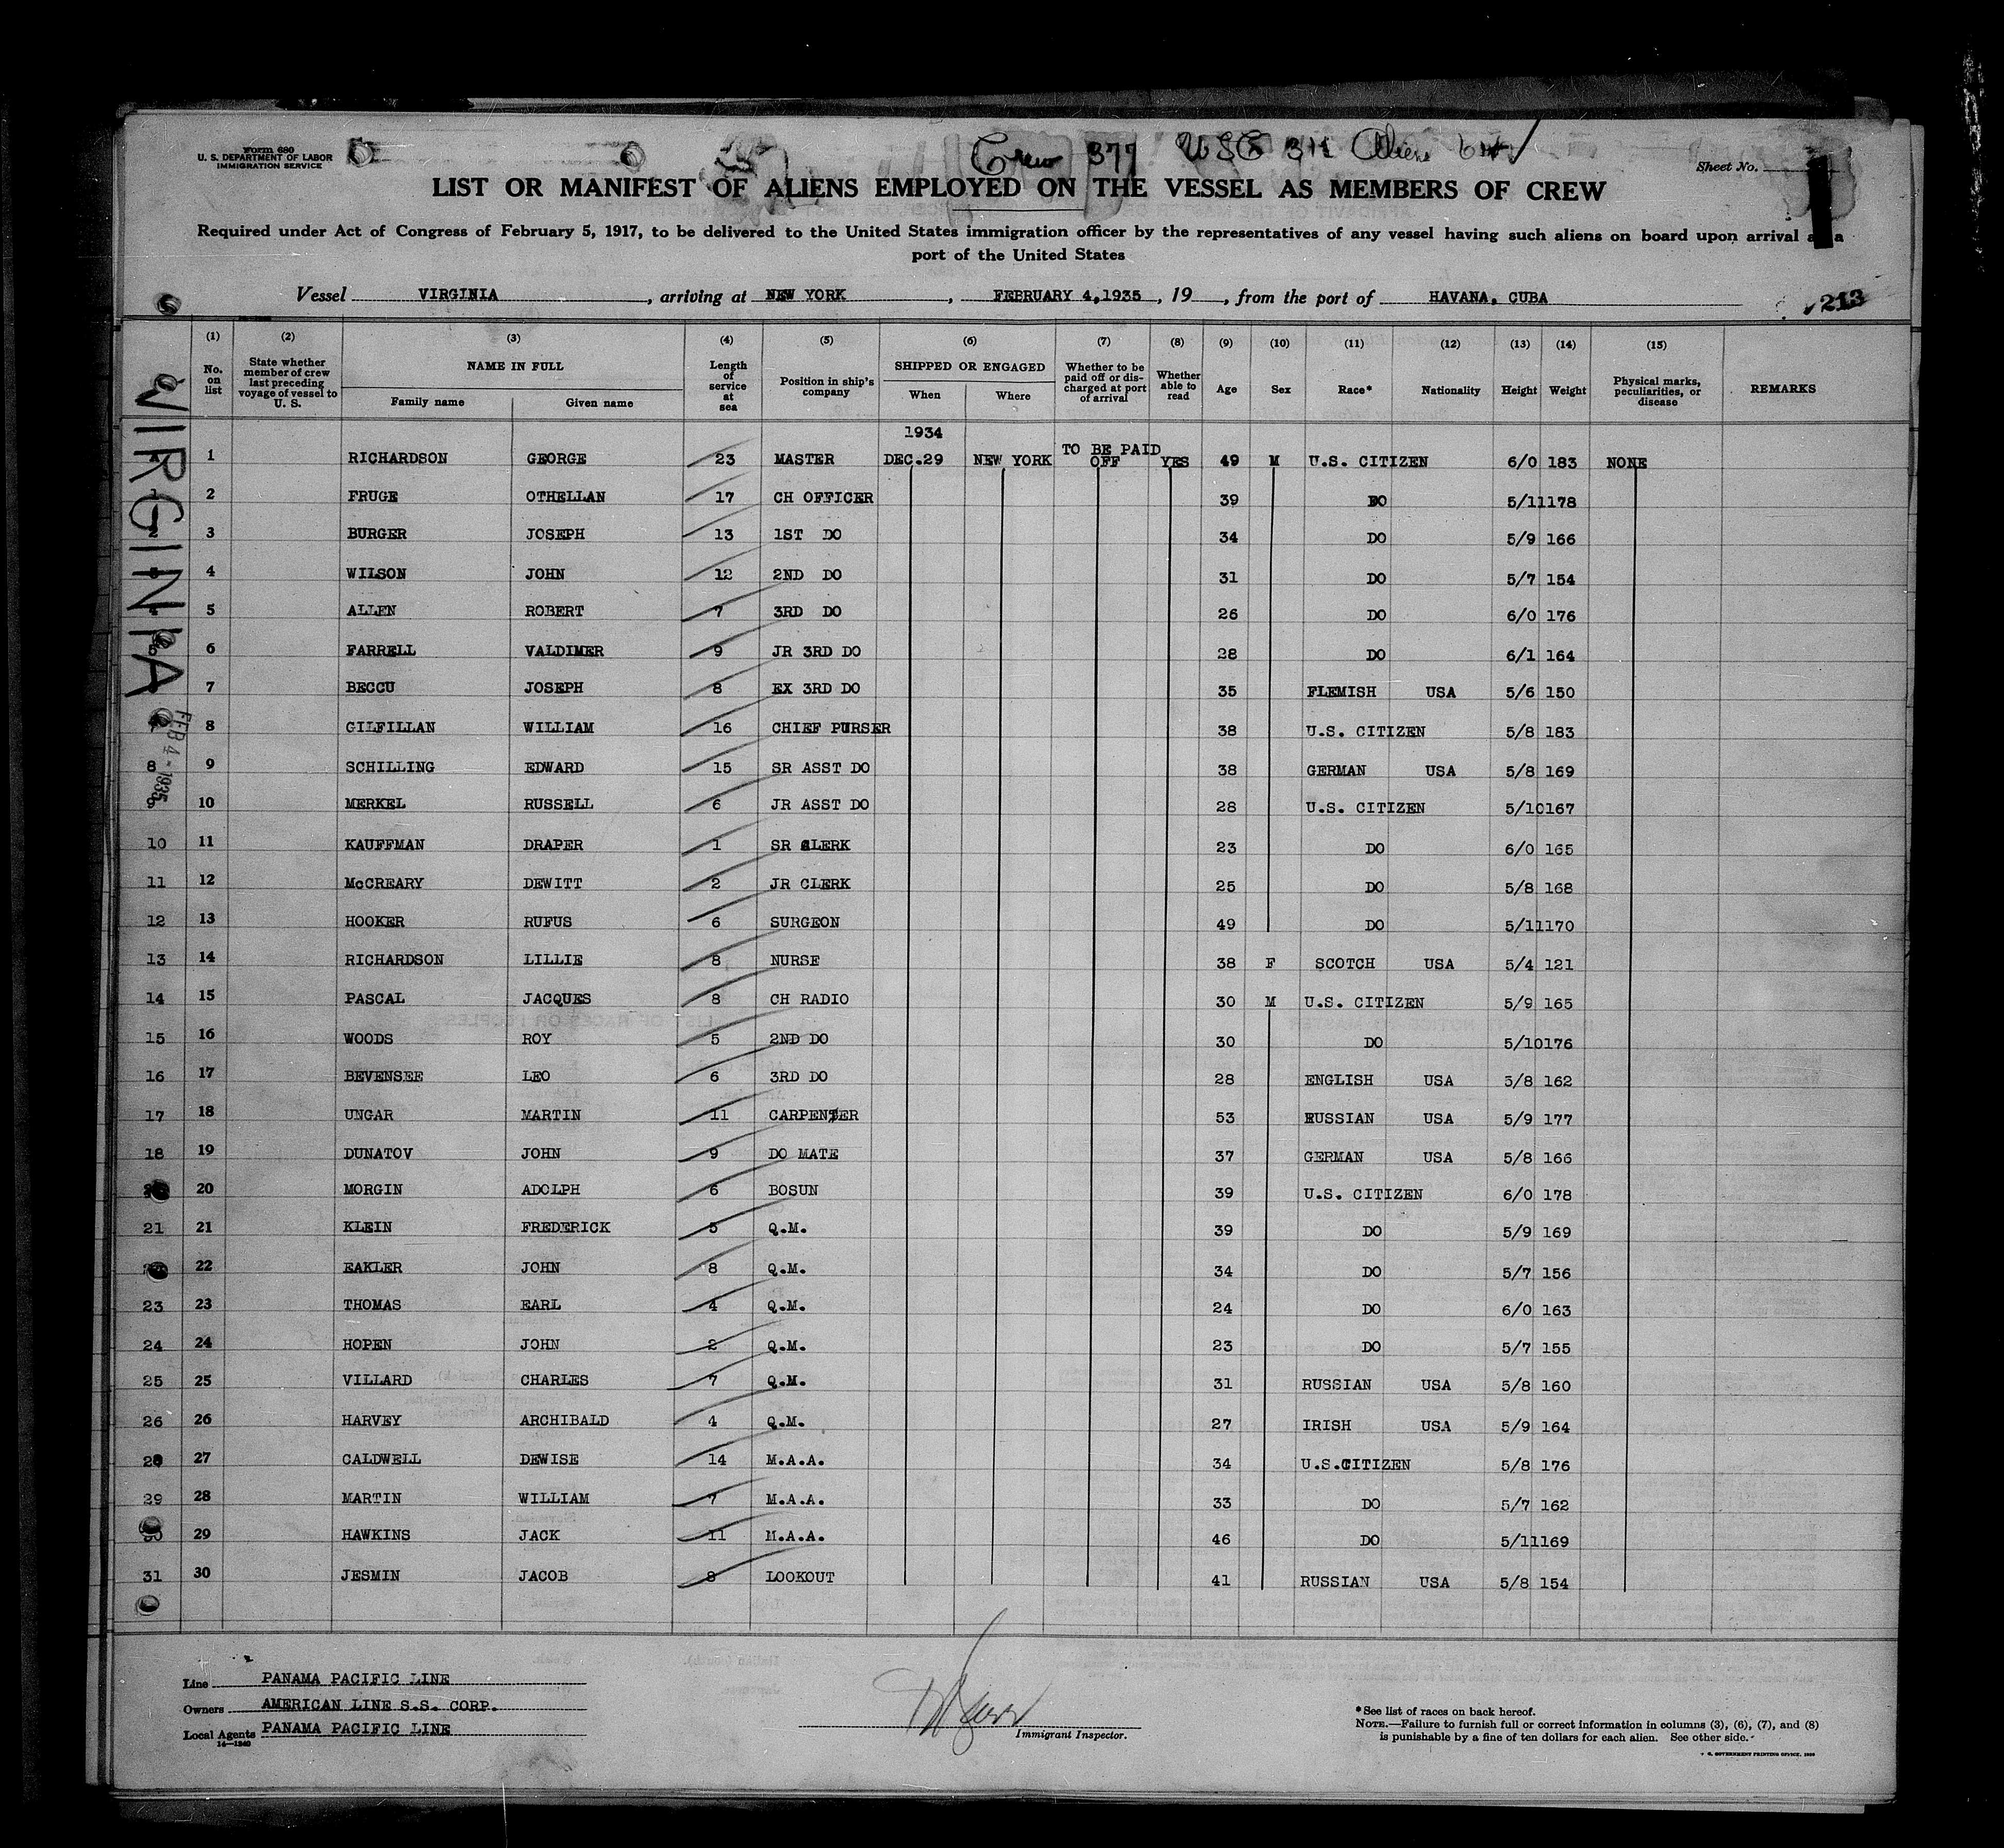 Form 680
U. S. DEPARTMENT OF LABOR
IMMIGRATION SERVICE
Crew 377 USC Aliens
Sheet No.
LIST OR MANIFEST OF ALIENS EMPLOYED ON THE VESSEL AS MEMBERS OF CREW
Required under Act of Congress of February 5, 1917, to be delivered to the United States immigration officer by the representatives of any vessel having such aliens on board upon arrival a a
port of the United States
Vessel VIRGINIA, arriving at NEW YORK, FEBRUARY 4,1935, 19 , from the port of HAVANA, CUBA
213
(1) (2) (3) (4) (5) (6) (7) (8) (9) (10) (11) (12) (13) (14) (15)
No. on list State whether member of crew last preceding voyage of vessel to U. S. NAME IN FULL Family name Given name Length of service at sea Position in ship's company SHIPPED OR ENGAGED When Where Whether to be paid off or discharged at port of arrival Whether able to read Age Sex Race* Nationality Height Weight Physical marks, peculiarities, or disease REMARKS
VIRGINIA
FEB 4 - 1935
1934
1 RICHARDSON GEORGE 23 MASTER DEC.29 NEW YORK TO BE PAID OFF YES 49 M U.S. CITIZEN 6/0 183 NONE
1 2 FRUGE OTHELLAN 17 CH OFFICER 39 DO 5/11 178
2 3 BURGER JOSEPH 13 1ST DO 34 DO 5/9 166
3 4 WILSON JOHN 12 2ND DO 31 DO 5/7 154
4 5 ALLEN ROBERT 7 3RD DO 26 DO 6/0 176
6 FARRELL VALDIMER 9 JR 3RD DO 28 DO 6/1 164
7 BECCU JOSEPH 8 EX 3RD DO 35 FLEMISH USA 5/6 150
7 8 GILFILLAN WILLIAM 16 CHIEF PURSER 38 U.S. CITIZEN 5/8 183
8 9 SCHILLING EDWARD 15 SR ASST DO 38 GERMAN USA 5/8 169
9 10 MERKEL RUSSELL 6 JR ASST DO 28 U.S. CITIZEN 5/10 167
10 11 KAUFFMAN DRAPER 1 SR CLERK 23 DO 6/0 165
11 12 McCREARY DEWITT 2 JR CLERK 25 DO 5/8 168
12 13 HOOKER RUFUS 6 SURGEON 49 DO 5/11 170
13 14 RICHARDSON LILLIE 8 NURSE 38 F SCOTCH USA 5/4 121
14 15 PASCAL JACQUES 8 CH RADIO 30 M U.S. CITIZEN 5/9 165
15 16 WOODS ROY 5 2ND DO 30 DO 5/10 176
16 17 BEVENSEE LEO 6 3RD DO 28 ENGLISH USA 5/8 162
17 18 UNGAR MARTIN 11 CARPENTER 53 RUSSIAN USA 5/9 177
18 19 DUNATOV JOHN 9 DO MATE 37 GERMAN USA 5/8 166
20 MORGIN ADOLPH 6 BOSUN 39 U.S. CITIZEN 6/0 178
21 21 KLEIN FREDERICK 5 Q.M. 39 DO 5/9 169
22 EAKLER JOHN 8 Q.M. 34 DO 5/7 156
23 23 THOMAS EARL 4 Q.M. 24 DO 6/0 163
24 24 HOPEN JOHN 2 Q.M. 23 DO 5/7 155
25 25 VILLARD CHARLES 7 Q.M. 31 RUSSIAN USA 5/8 160
26 26 HARVEY ARCHIBALD 4 Q.M. 27 IRISH USA 5/9 164
27 CALDWELL DEWISE 14 M.A.A. 34 U.S.CITIZEN 5/8 176
29 28 MARTIN WILLIAM 7 M.A.A. 33 DO 5/7 162
30 29 HAWKINS JACK 11 M.A.A. 46 DO 5/11 169
31 30 JESMIN JACOB 8 LOOKOUT 41 RUSSIAN USA 5/8 154
Line PANAMA PACIFIC LINE
Owners AMERICAN LINE S.S. CORP.
Local Agents PANAMA PACIFIC LINE
14—1240
Immigrant Inspector.
*See list of races on back hereof.
NOTE.—Failure to furnish full or correct information in columns (3), (6), (7), and (8)
is punishable by a fine of ten dollars for each alien. See other side.
GOVERNMENT PRINTING OFFICE